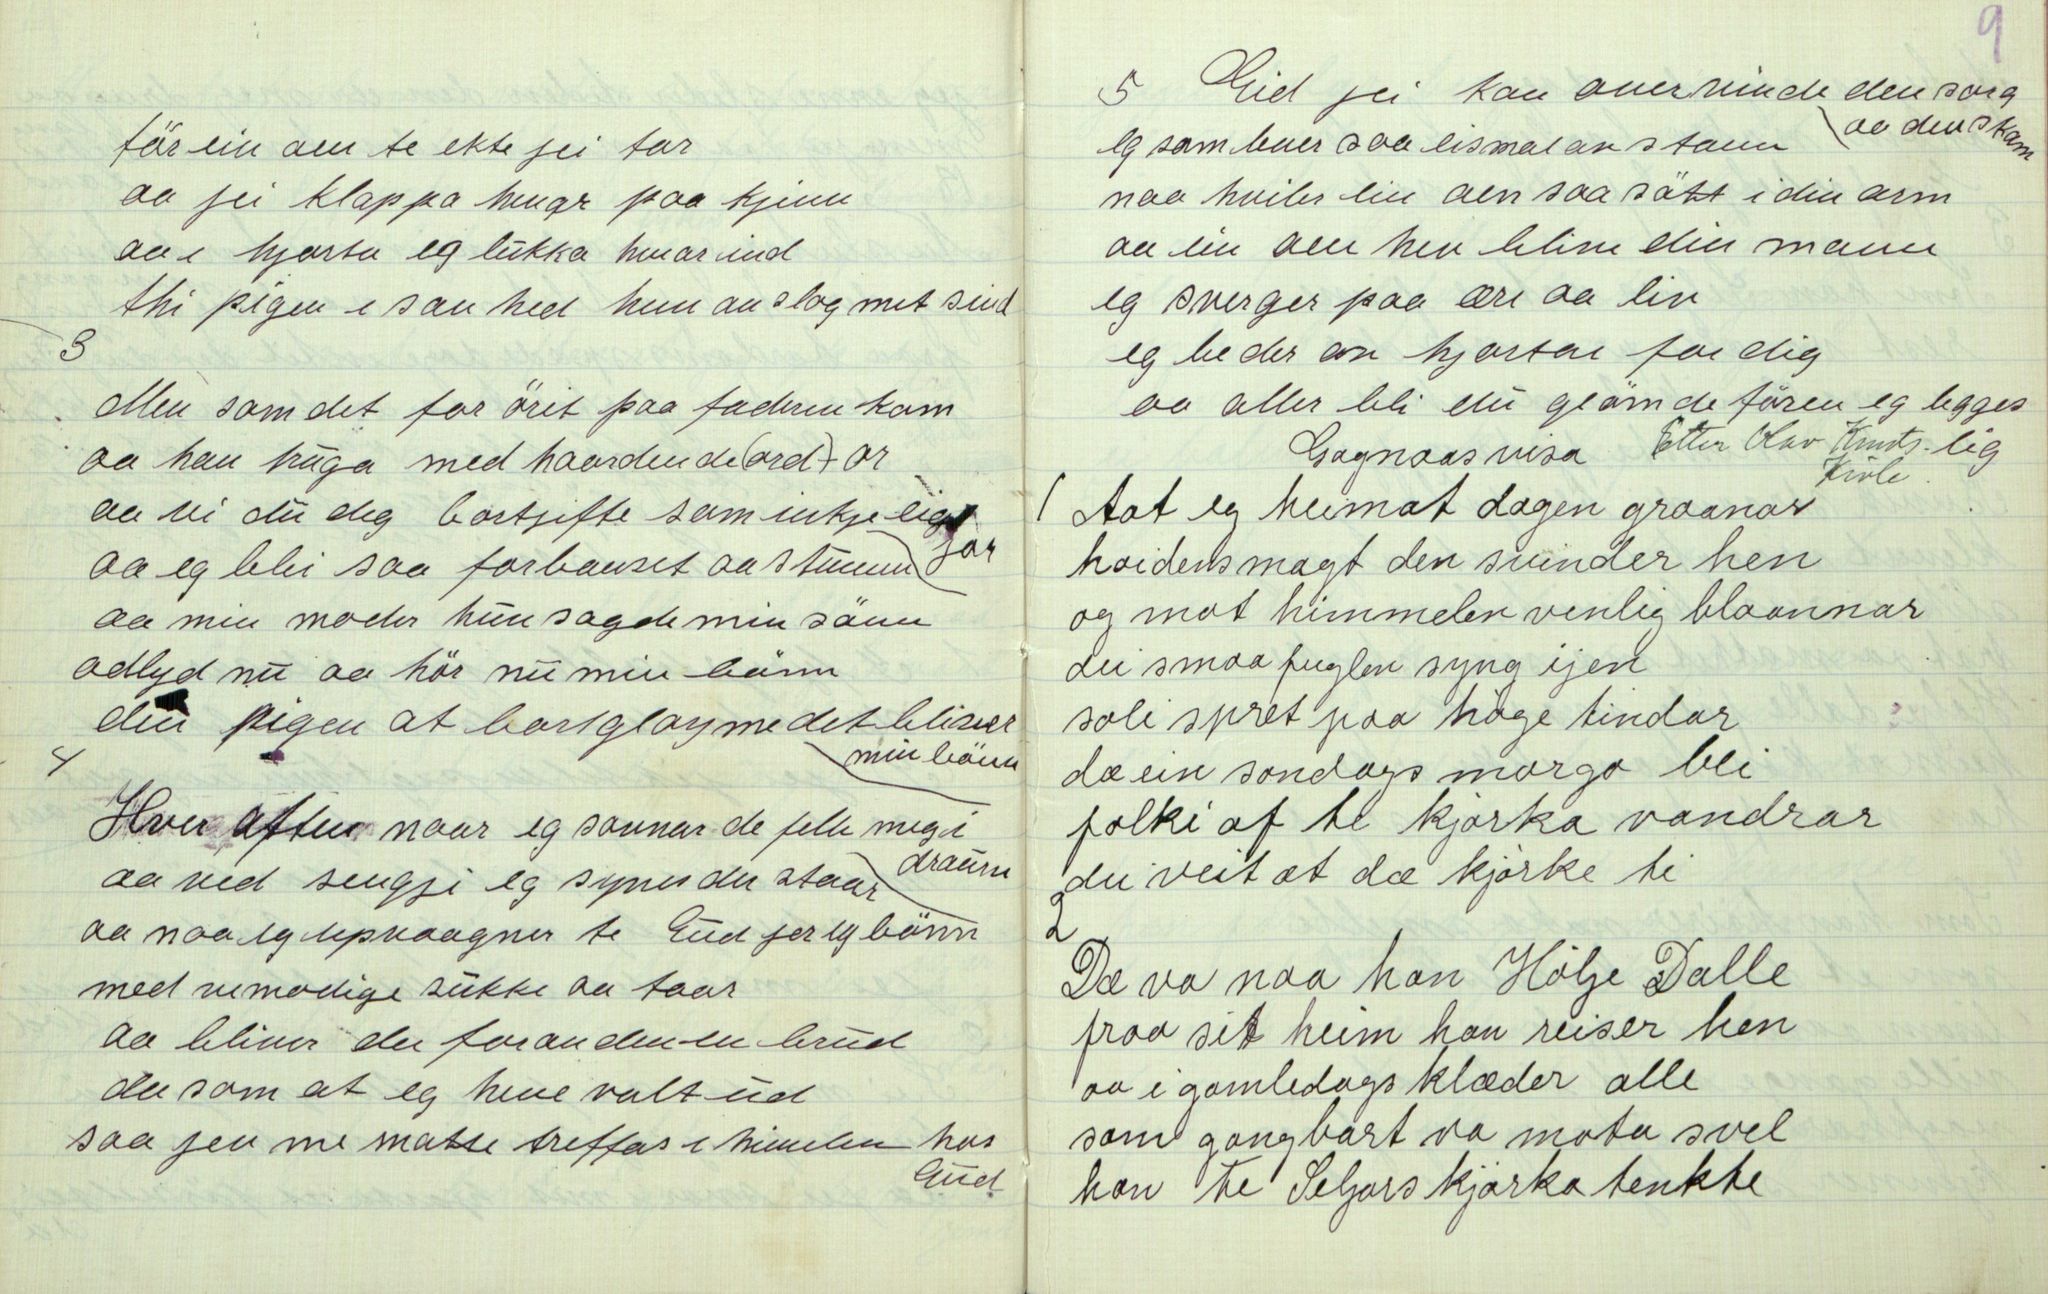 för ein aen te ekte jei tar
aa jei klappa hugr paa kjinn
aa i hjarta eg lukka huar ind
thi pigen i sanhed hun anslog mit sind
3
Men som det for örit paa faderen kom
aa han truga med haardende (ord) or
aa vi du deg bortjifte som inkje eig jor
aa eg blei saa forbauset aa stumm
aa min moder hun sagde min sönn
adlyd nu aa hör nu min bönn
den pigen at bortgløyme det bliver min bönn
4
Hver aften naar eg sovnar de felle meg i draum
aa ved sengji eg synes der staar
aa naa eg upvaagner te Gud jer eg bönn
med vemodige sukke aa taar
aa bliver du for anden en brud
du som at eg heve valt ud
saa jen me matte treffas i himelen hos Gud
9
5 Gid jei kan overvinde den sorg aa den skam
eg som lever saa eismal an stann
naa hviler ein aen saa sött i din arm
aa ein aen hev blive din mann
eg sverger paa ære aa liv
eg beder av hjartae for dig
aa aller bli du glömde fören eg legges lig
Gagnaasvisa Etter Olav Knuts. Kivle.
1 Aat eg heimat dagen graanar
hoidensmagt den svinder hen
og mot himmelen venlig blaannar
dei smaa fuglen syng ijen
soli spret paa höge tindar
dæ ein sondags morgo bli
folki af te kjörka vandrar
dei veit at dæ kjörke ti
2
Dæ va naa han Hölje Dalle
fraa sit heim han reiser hen
aa i gamledags klæder alle
som gangbart va mota svel
han te Seljors kjörka tenkte